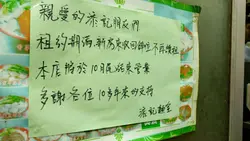 親愛的添記朋友們
租約期滿,新房東收回舖位不再續租
本店將於10月底結束營業
多謝各位10多年來的支持
添記麵室